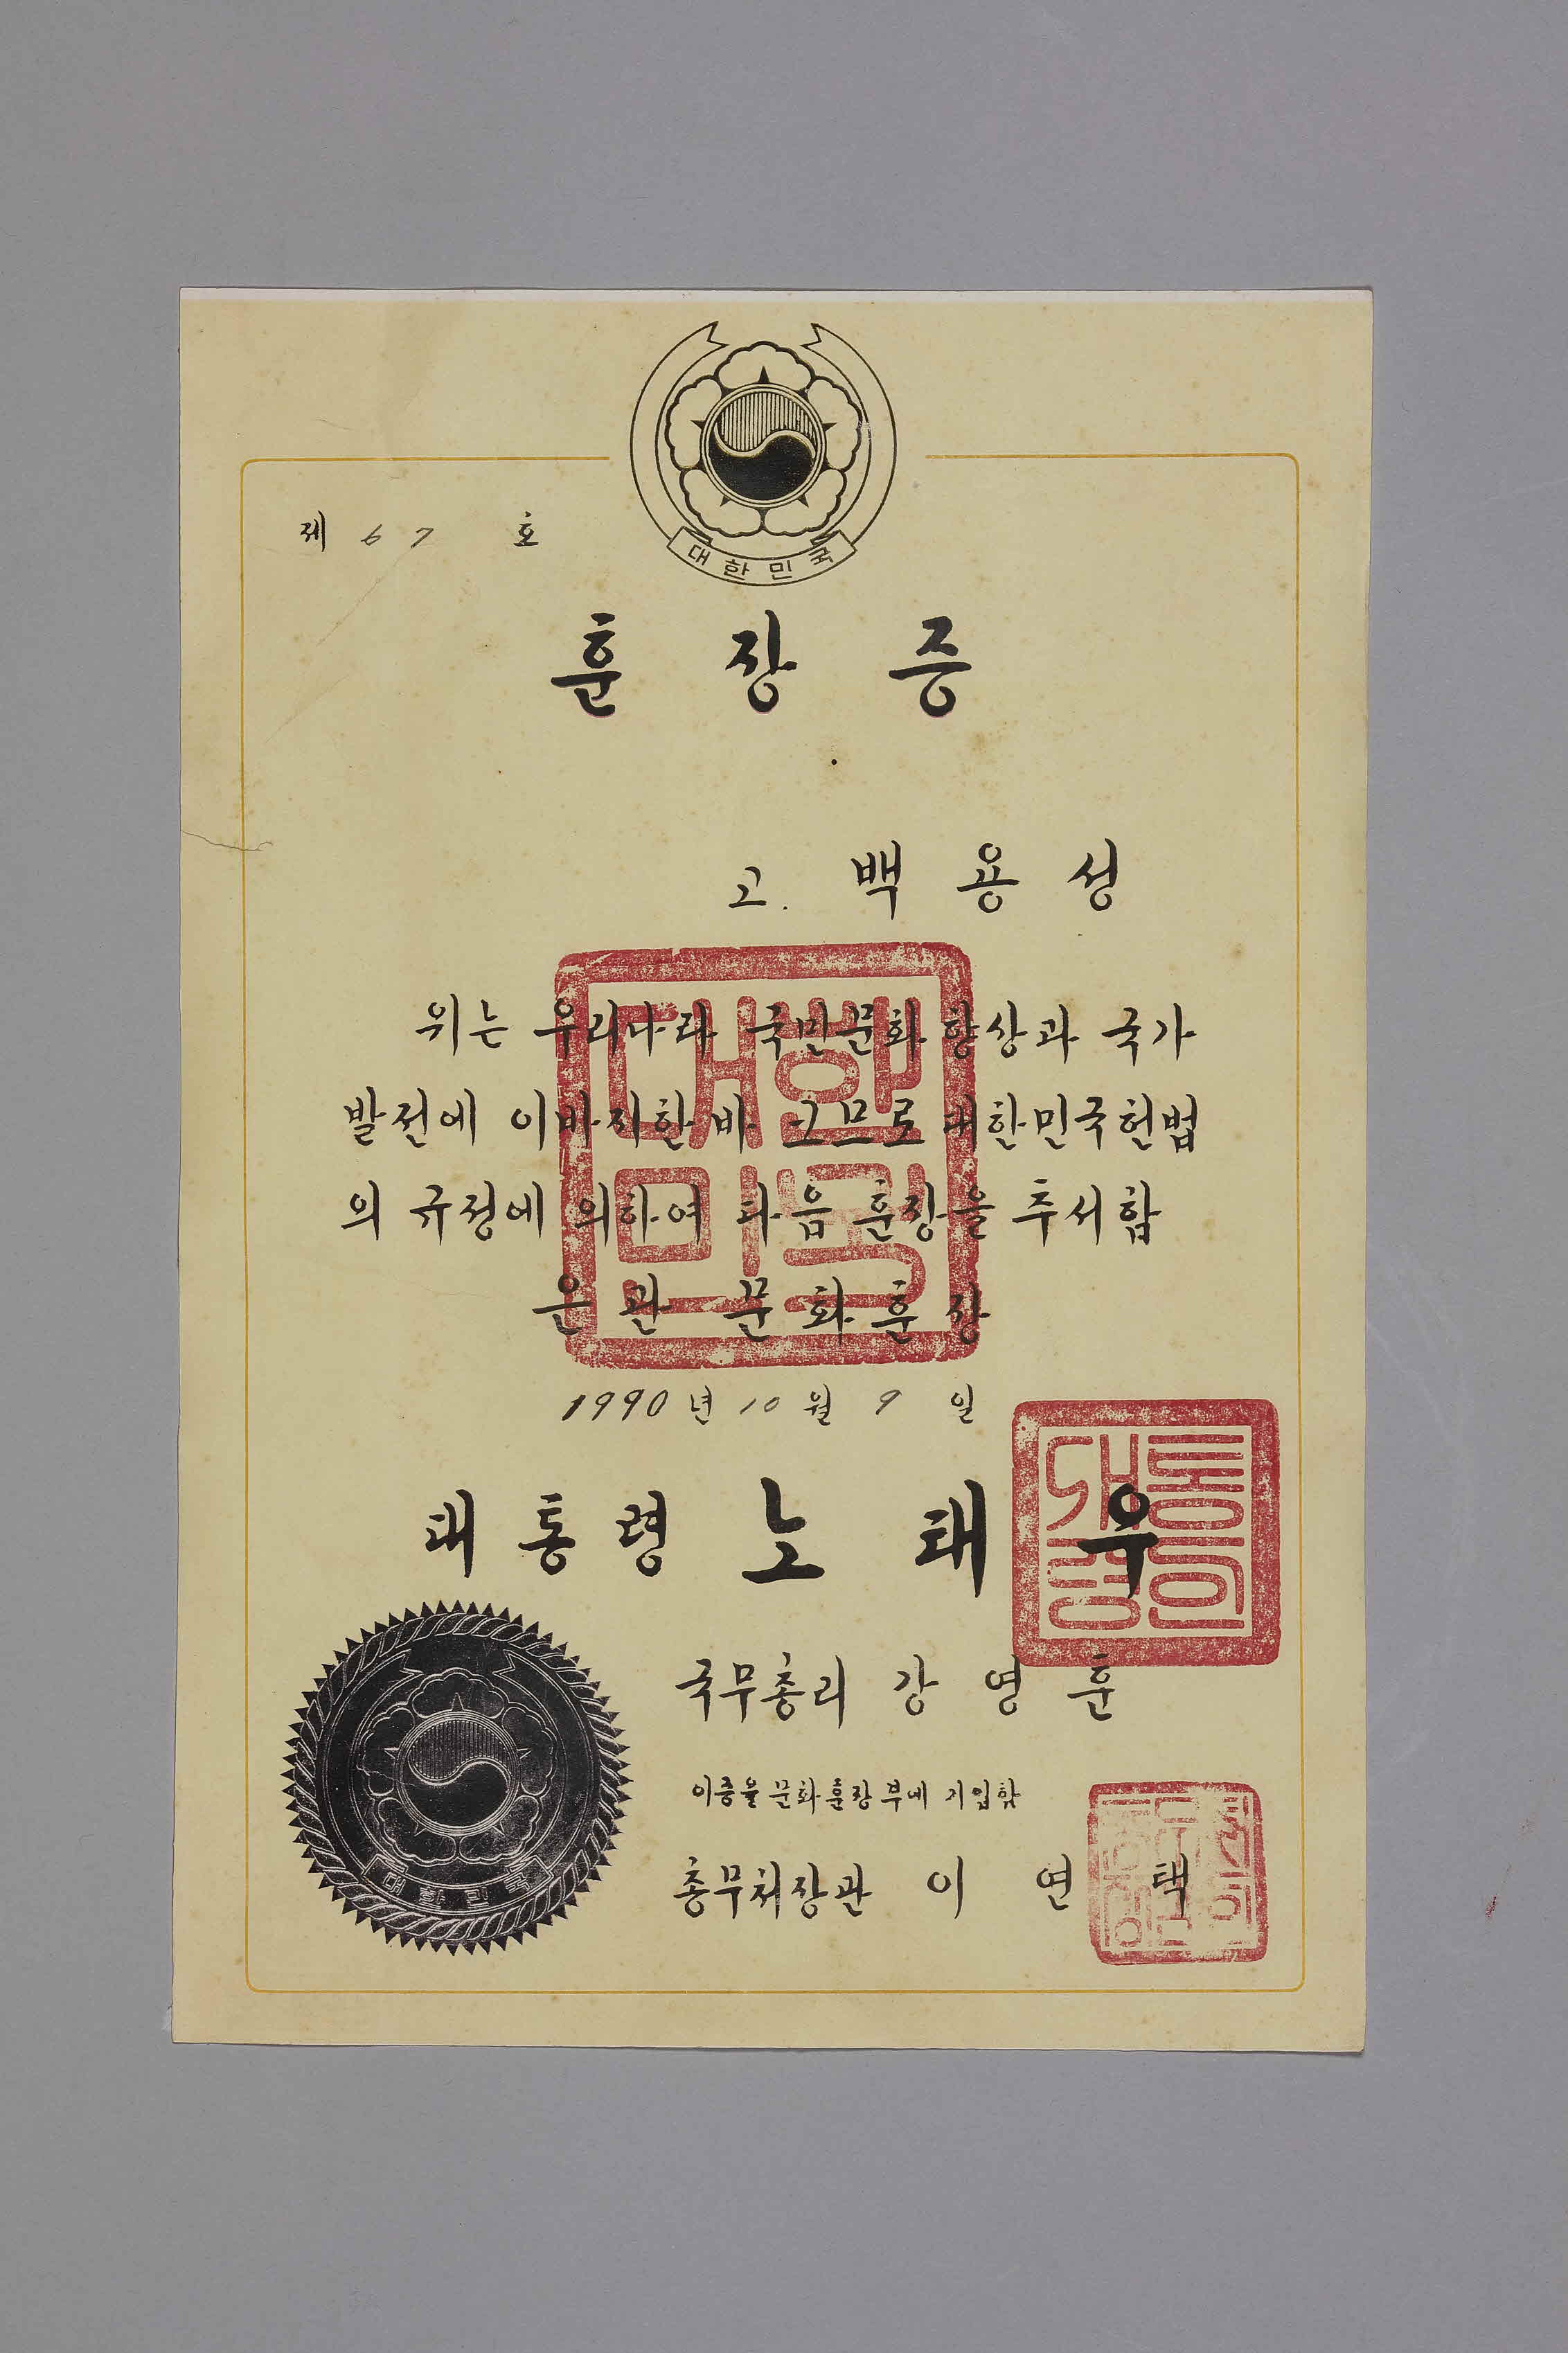 대한민국
제 67 호
훈장증
고. 백용성
위는 우리나라 국민문화 향상과 국가
발전에 이바지한 바 크므로 대한민국헌법
의 규정에 의하여 다음 훈장을 추서함
은관 문화훈장
대한민국
1990년 10월 9일
대통령 노태우
대통령의
국무총리 강영훈
이증을 문화훈장부에 기입함
총무처장관 이연택
대한민국